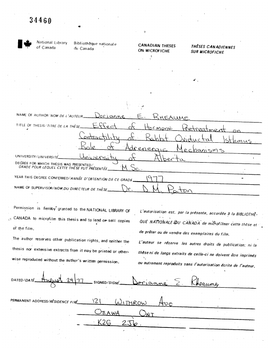 34460
National Library of Canada
Bibliothèque nationale du Canada
CANADIAN THESES ON MICROFICHE
THÈSES CANADIENNES SUR MICROFICHE
NAME OF AUTHOR/NOM DE L'AUTEUR Dorianne E. Rheaume
TITLE OF THESIS/TITRE DE LA THÈSE Effect of Hormone Pretreatment on
Contractility of Rabbit Oviductal Isthmus
Role of Adrenergic Mechanisms
UNIVERSITY/UNIVERSITÉ University of Alberta
DEGREE FOR WHICH THESIS WAS PRESENTED/
GRADE POUR LEQUEL CETTE THÈSE FUT PRÉSENTÉE M.Sc.
YEAR THIS DEGREE CONFERRED/ANNÉE D'OBTENTION DE CE GRADE 1977
NAME OF SUPERVISOR/NOM DU DIRECTEUR DE THÈSE Dr. D.M. Paton
Permission is hereby granted to the NATIONAL LIBRARY OF
CANADA to microfilm this thesis and to lend or sell copies
of the film.
The author reserves other publication rights, and neither the
thesis nor extensive extracts from it may be printed or other-
wise reproduced without the author's written permission.
L'autorisation est, par la présente, accordée à la BIBLIOTHÈ-
QUE NATIONALE DU CANADA de microfilmer cette thèse et
de prêter ou de vendre des exemplaires du film.
L'auteur se réserve les autres droits de publication; ni la
thèse ni de longs extraits de celle-ci ne doivent être imprimés
ou autrement reproduits sans l'autorisation écrite de l'auteur.
DATED/DATÉ August 29/77 SIGNED/SIGNÉ Dorianne E. Rheaume
PERMANENT ADDRESS/RÉSIDENCE FIXE 121 Withrow Ave
Ottawa Ont
K2G 2J6